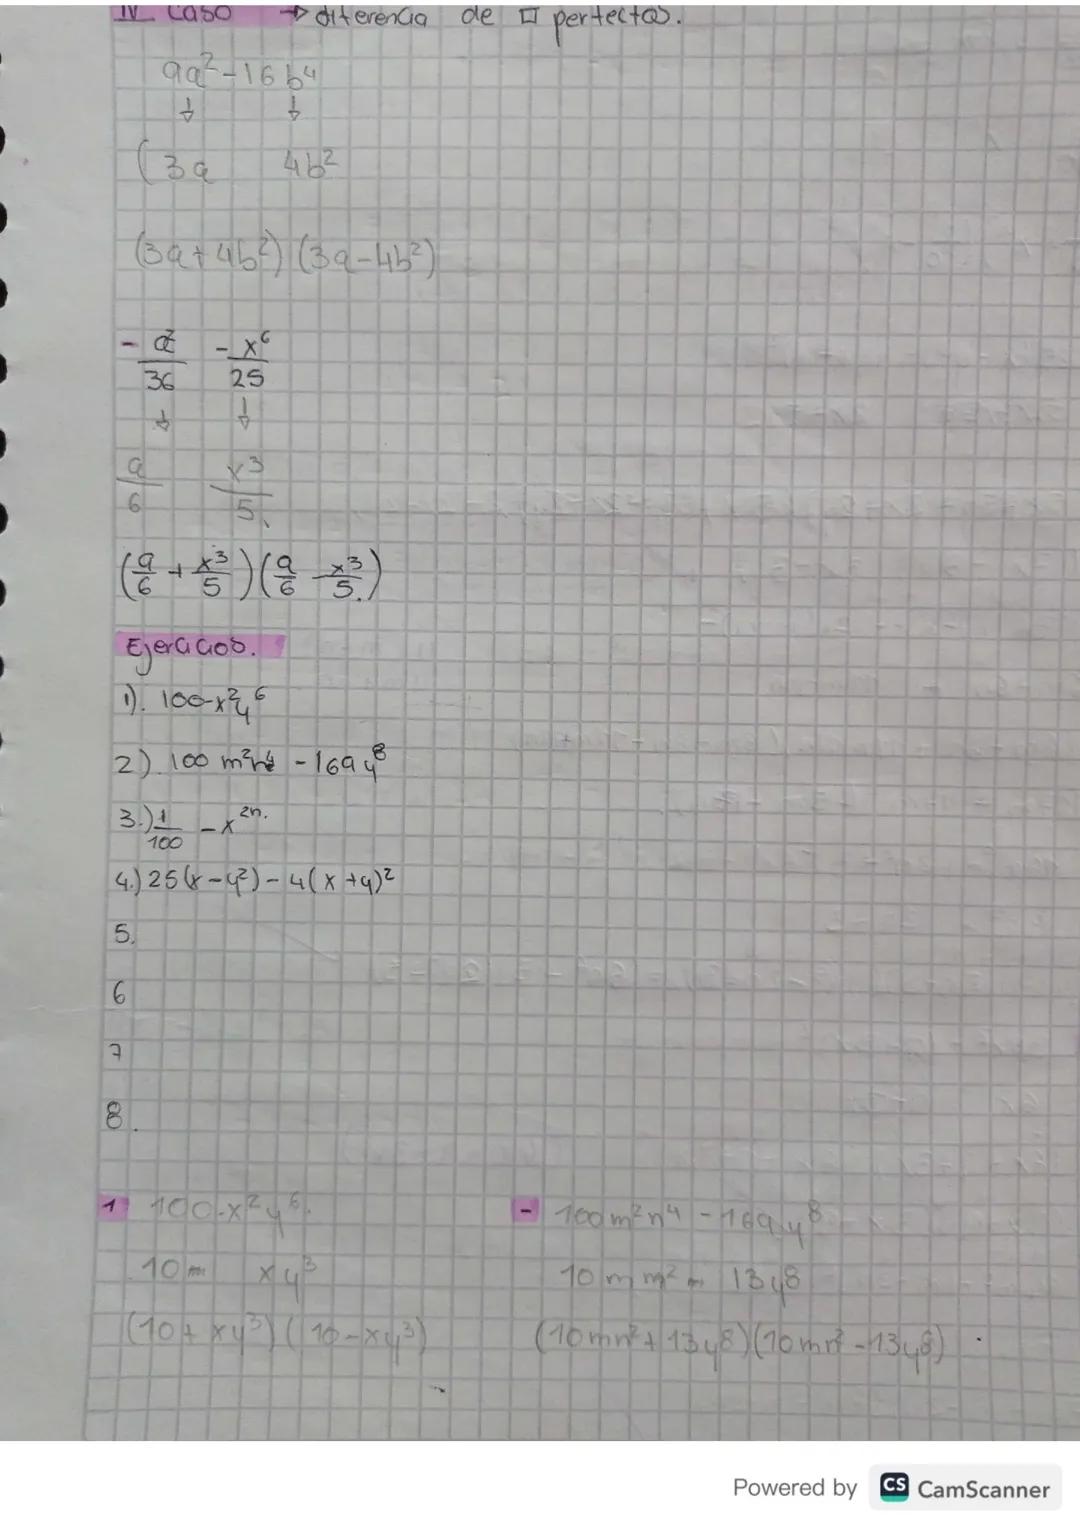 IV Caso → diferencia de □ perfectos.
9a² - 16b⁴
↓ ↓
(3a 4b²
(3a + 4b²) (3a - 4b²)
- a²/36 - x⁶/25
↓ ↓
a/6 x³/5
(a/6 + x³/5) (a/6 - x³/5.)
Ejercicios.
1). 100-x²y⁶
2). 100 m²n⁴ - 169y⁸
3.) 1/100 - x²ⁿ.
4.) 25(x-y²) - 4(x+y)²
5.
6
7
8.
1 100-x²y⁶.
10 - xy³
(10+xy³) (10-xy³)
- 100m²n⁴ - 169y⁸
10 m m² - 13y⁸
(10mn² + 13y⁸)(10mn² - 13y⁸)
Powered by CS CamScanner